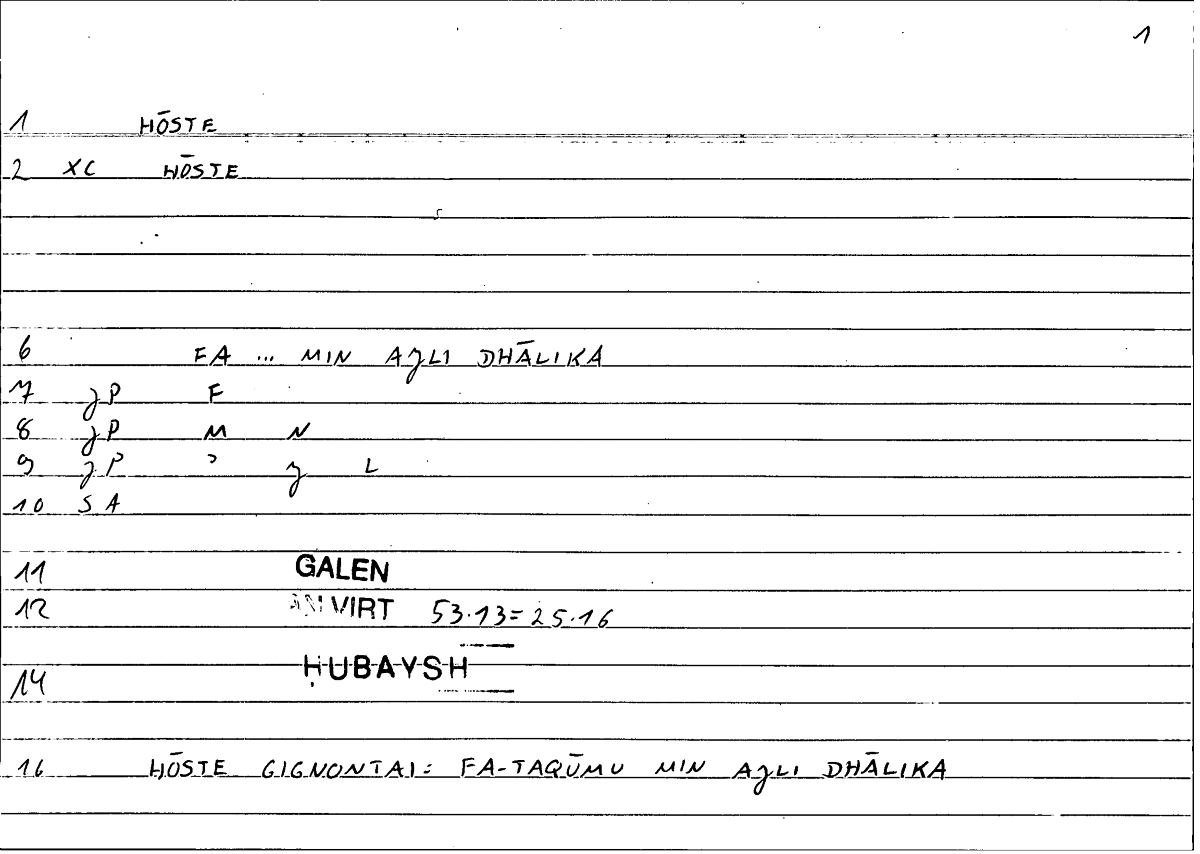 1
1 HŌSTE
2 XC HŌSTE
6 FA ... MIN AJLI DHĀLIKA
7 JP F
8 JP M N
9 JP ʾ J L
10 SA
11 GALEN
12 AN VIRT 53.13=25.16
14 ḤUBAYSH
16 HŌSTE GIGNONTAI: FA-TAQŪMU MIN AJLI DHĀLIKA